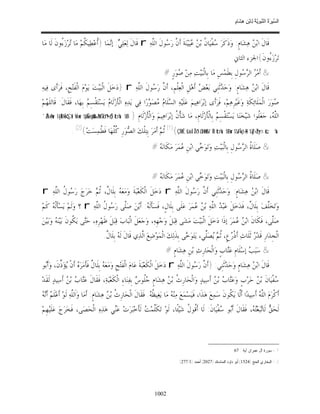 السِّيرَةُ النَّبَوِيَّةُ لابْنِ هِشَامٍ
قَالَ ابْنُ هِشَامٍ: وَذَكَرَ سُفْيَانُ بْنُ عُيَيْنَةَ أَنَّ رَسُولَ اللَّهِ قَالَ لِعَلِيٍّ: إنَّمَا (أُعْطِيكُمْ مَا تُرْزَءُونَ لَا مَا
تَرْزَءُونَ )الجزء الثاني
# أَمْرُ الرَّسُولِ بِطَمْسِ مَا بِالْبَيْتِ مِنْ صُوَرٍ #
قَالَ ابْنُ هِشَامٍ: وَحَدَّثَنِي بَعْضُ أَهْلِ الْعِلْمِ: أَنَّ رَسُولَ اللَّهِ (دَخَلَ الْبَيْتَ يَوْمَ الْفَتْحِ، فَرَأَى فِيهِ
صُوَرَ الْمَلَائِكَةِ وَغَيْرِهِمْ، فَرَأَى إبْرَاهِيمَ عَلَيْهِ السَّلَامُ مُصَوَّرًا فِي يَدِهِ الْأَزْلَامُ يَسْتَقْسِمُ بِهَا، فَقَالَ: قَاتَلَهُمْ
اللَّهُ، جَعَلُوا شَيْخَنَا يَسْتَقْسِمُ بِالْأَزْلَامِ، مَا شَأْنُ إبْرَاهِيمَ وَالْأَزْلَامِ (
) ثُمَّ أَمَرَ بِتِلْكَ الصُّوَرِ كُلِّهَا فَطُمِسَتْ)
# صَلَاةُ الرَّسُولِ بِالْبَيْتِ وَتَوَخِّي ابْنِ عُمَرَ مَكَانَهُ #
# صَلَاةُ الرَّسُولِ بِالْبَيْتِ وَتَوَخِّي ابْنِ عُمَرَ مَكَانَهُ #
قَالَ ابْنُ هِشَامٍ: وَحَدَّثَنِي أَنَّ رَسُولَ اللَّهِ دَخَلَ الْكَعْبَةَ وَمَعَهُ بِلَالٌ، ثُمَّ خَرَجَ رَسُولُ اللَّهِ
وَتَخَلَّفَ بِلَالٌ، فَدَخَلَ عَبْدُ اللَّهِ بْنُ عُمَرَ عَلَى بِلَالٍ، فَسَأَلَهُ: أَيْنَ صَلَّى رَسُولُ اللَّهِ ؟ وَلَمْ يَسْأَلْهُ كَمْ
صَلَّى، فَكَانَ ابْنُ عُمَرَ إذَا دَخَلَ الْبَيْتَ مَشَى قِبَلَ وَجْهِهِ، وَجَعَلَ الْبَابَ قِبَلَ ظَهْرِهِ، حَتَّى يَكُونَ بَيْنَهُ وَبَيْنَ
الْجِدَارِ قَدْرُ ثَلَاثِ أَذْرُعٍ، ثُمَّ يُصَلِّي، يَتَوَخَّى بِذَلِكَ الْمَوْضِعَ الَّذِي قَالَ لَهُ بِلَالٌ.
# سَبَبُ إسْلَامِ عَتَّابٍ وَالْحَارِثِ بْنِ هِشَامٍ #
قَالَ ابْنُ هِشَامٍ: وَحَدَّثَنِي: (أَنَّ رَسُولَ اللَّهِ دَخَلَ الْكَعْبَةَ عَامَ الْفَتْحِ وَمَعَهُ بِلَالٌ فَأَمَرَهُ أَنْ يُؤَذِّنَ، وَأَبُو
سُفْيَانَ بْنُ حَرْبٍ وَعَتَّابُ بْنُ أَسِيدٍ وَالْحَارِثُ بْنُ هِشَامٍ جُلُوسٌ بِفِنَاءِ الْكَعْبَةِ، فَقَالَ عَتَّابُ بْنُ أَسِيدٍ: لَقَدْ
أَكْرَمَ اللَّهُ أَسِيدًا أَلَّا يَكُونَ سَمِعَ هَذَا، فَيَسْمَعَ مِنْهُ مَا يَغِيظُهُ. فَقَالَ الْحَارِثُ بْنُ هِشَامٍ: أَمَا وَاللَّهِ لَوْ أَعْلَمُ أَنَّهُ
لَحَقٌّ لَاتَّبَعْتُهُ، فَقَالَ أَبُو سُفْيَانَ: لَا أَقُولُ شَيْئًا، لَوْ تَكَلَّمْتُ لَأَخْبَرَتْ عَنِّي هَذِهِ الْحَصَى، فَخَرَجَ عَلَيْهِمْ
سورة آل عمران آية : 67
البخاري الحج (1524), أبو داود المناسك (2027), أحمد (277/1)
1002